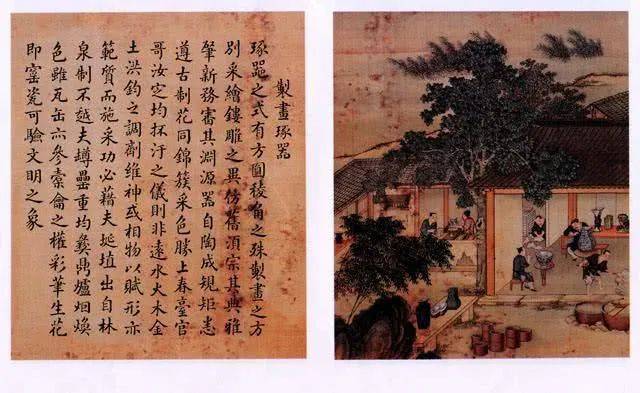 製畫琢器
琢器之式有方圓稜角之殊製畫之方
別采繪鏤雕之異仿舊須宗其典雅
肇新務審其淵源器自陶成規矩悉
遵古制花同錦簇采色勝上春臺官
哥汝定均抔汙之儀則非遠水火木金
土洪鈞之調劑維神或相物以賦形亦
範質而施采功必藉夫埏埴出自林
泉制不越夫罇罍重均彝鼎爐烟煥
色雖瓦缶亦參橐籥之權彩筆生花
即窑瓷可驗文明之象